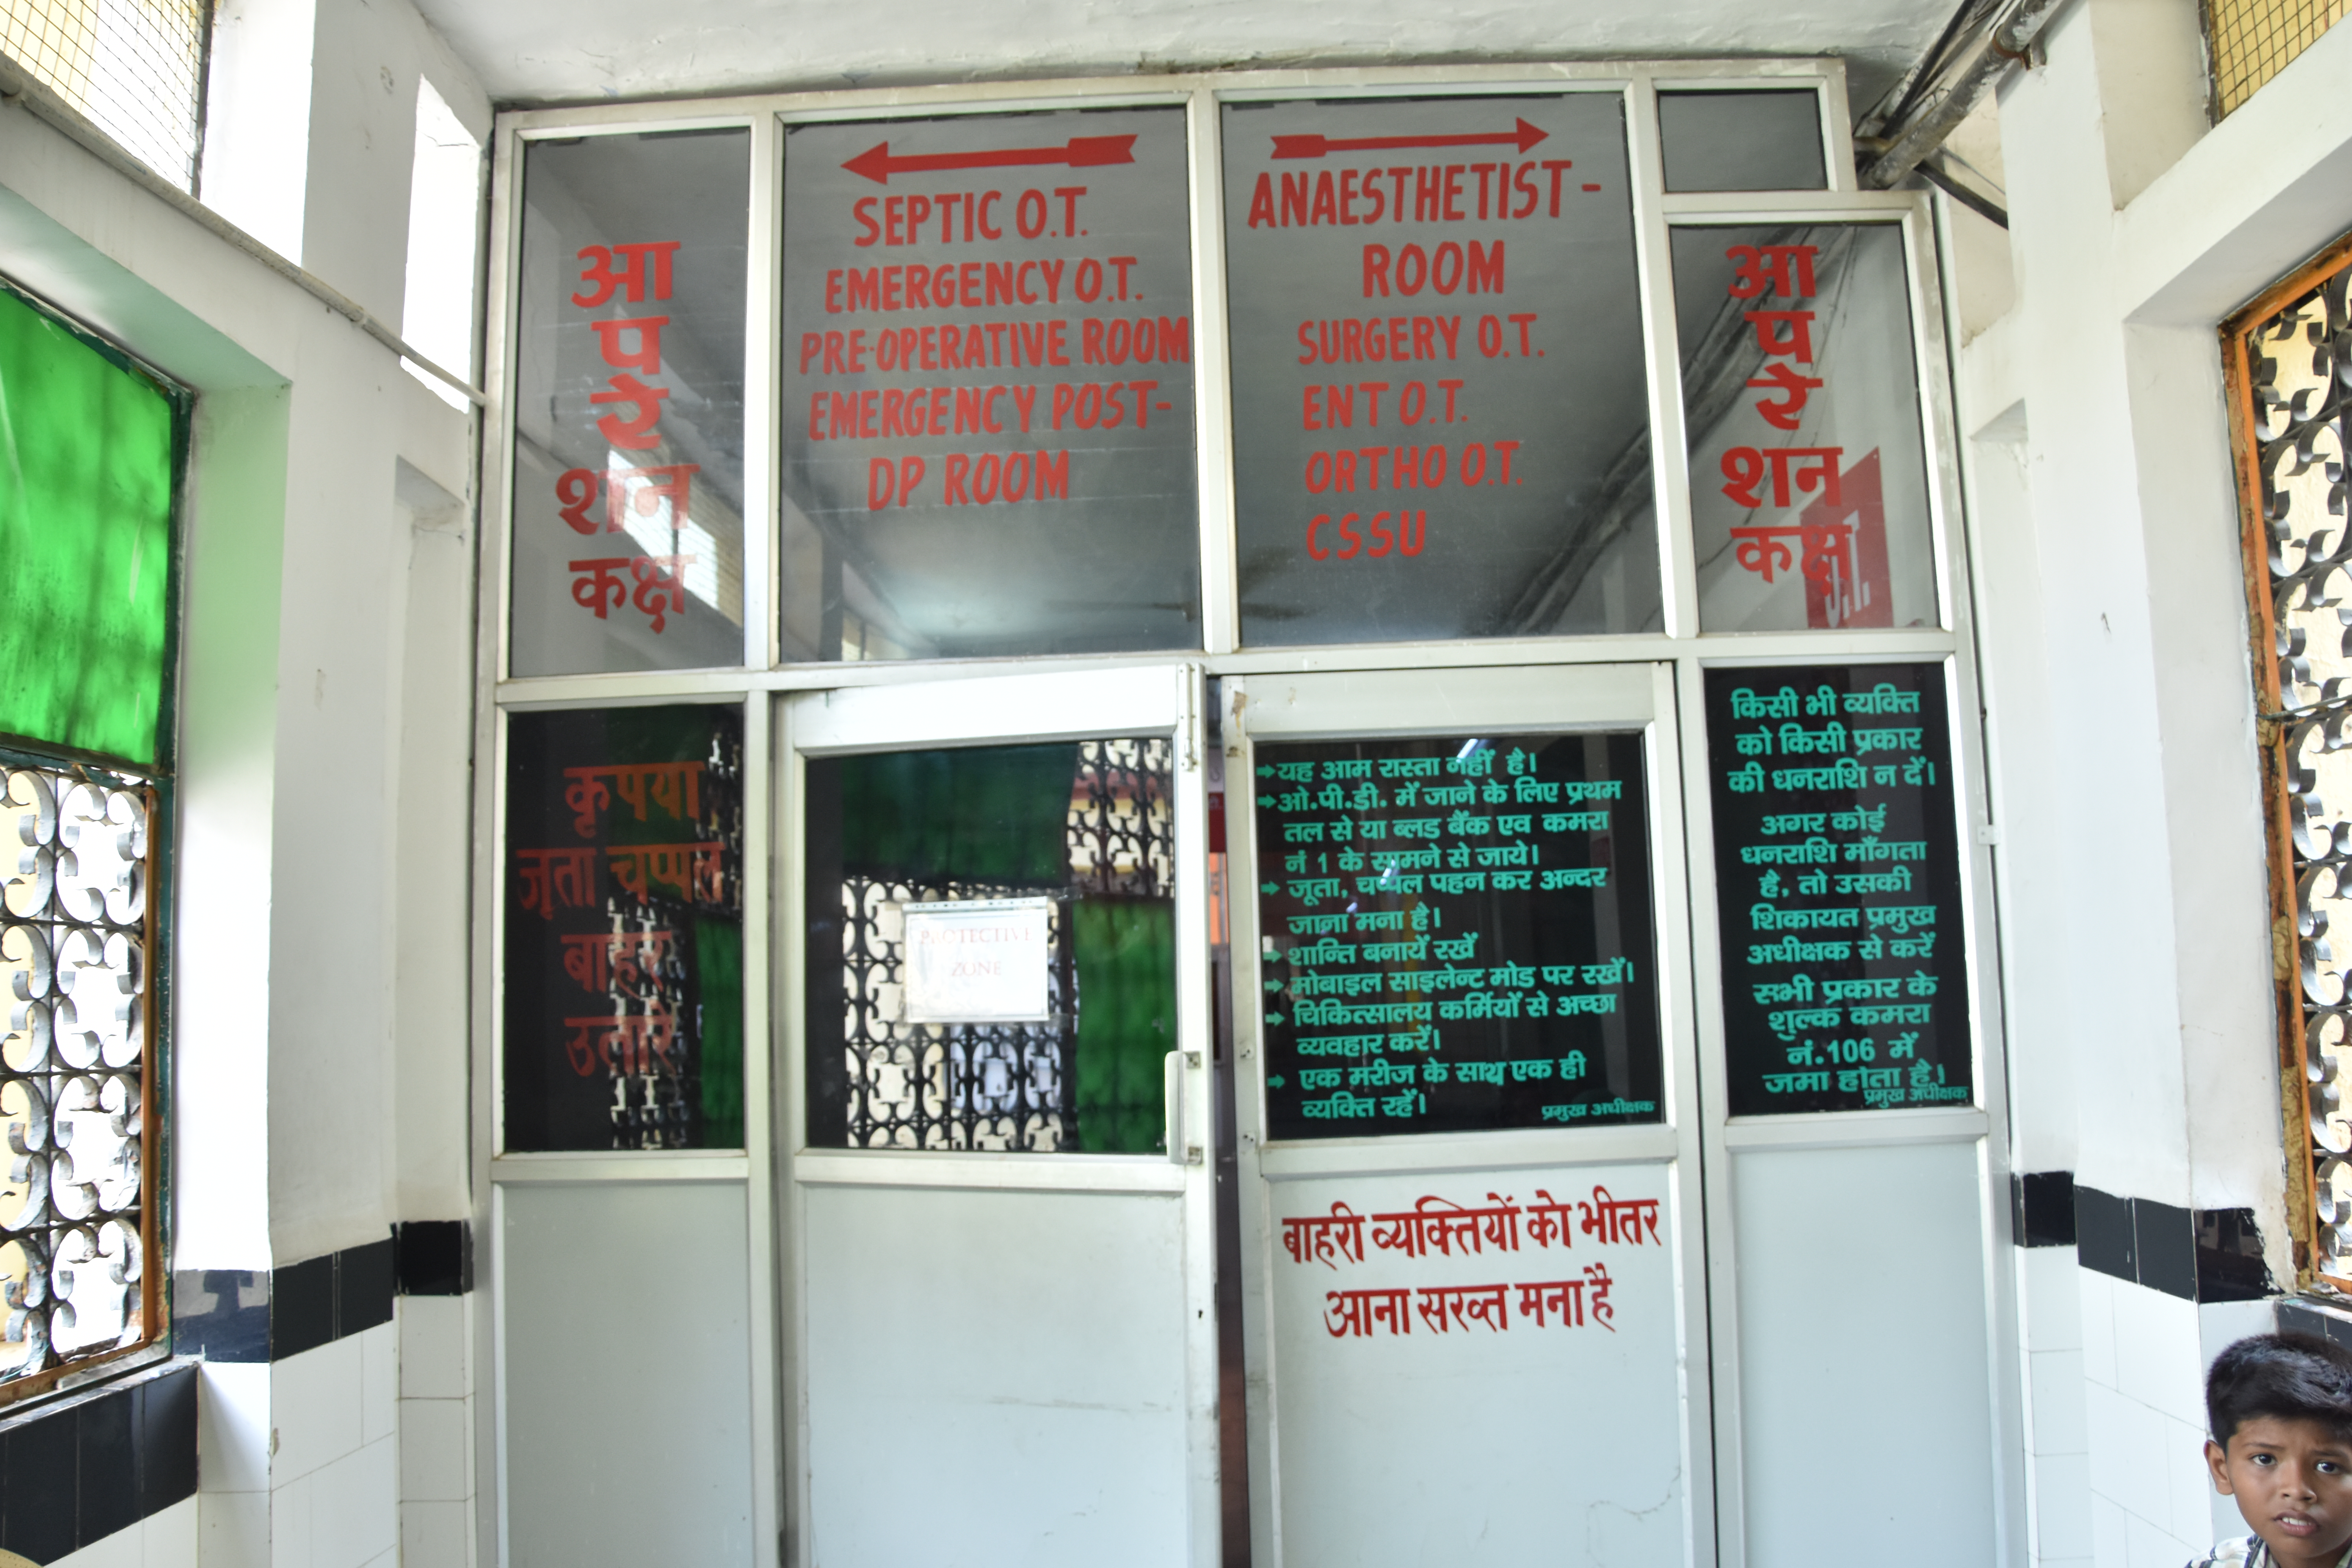 आ
प
रे
शन
कक्ष
SEPTIC O.T.
EMERGENCY O.T.
PRE-OPERATIVE ROOM
EMERGENCY POST-
DP ROOM
ANAESTHETIST-
ROOM
SURGERY O.T.
ENT O.T.
ORTHO O.T.
CSSU
आ
प
रे
शन
कक्ष
कृपया
जूता चप्पल
बाहर
उतारे
PROTECTIVE
ZONE
यह आम रास्ता नहीं है।
ओ.पी.डी. में जाने के लिए प्रथम
तल से या ब्लड बैंक एव कमरा
नं 1 के सामने से जाये।
जूता, चप्पल पहन कर अन्दर
जाना मना है।
शान्ति बनायें रखें
मोबाइल साइलेन्ट मोड पर रखें।
चिकित्सालय कर्मियों से अच्छा
व्यवहार करें।
एक मरीज के साथ एक ही
व्यक्ति रहें।
प्रमुख अधीक्षक
किसी भी व्यक्ति
को किसी प्रकार
की धनराशि न दें।
अगर कोई
धनराशि माँगता
है, तो उसकी
शिकायत प्रमुख
अधीक्षक से करें
सभी प्रकार के
शुल्क कमरा
नं.106 में
जमा होता है।
प्रमुख अधीक्षक
बाहरी व्यक्तियों को भीतर
आना सख्त मना है